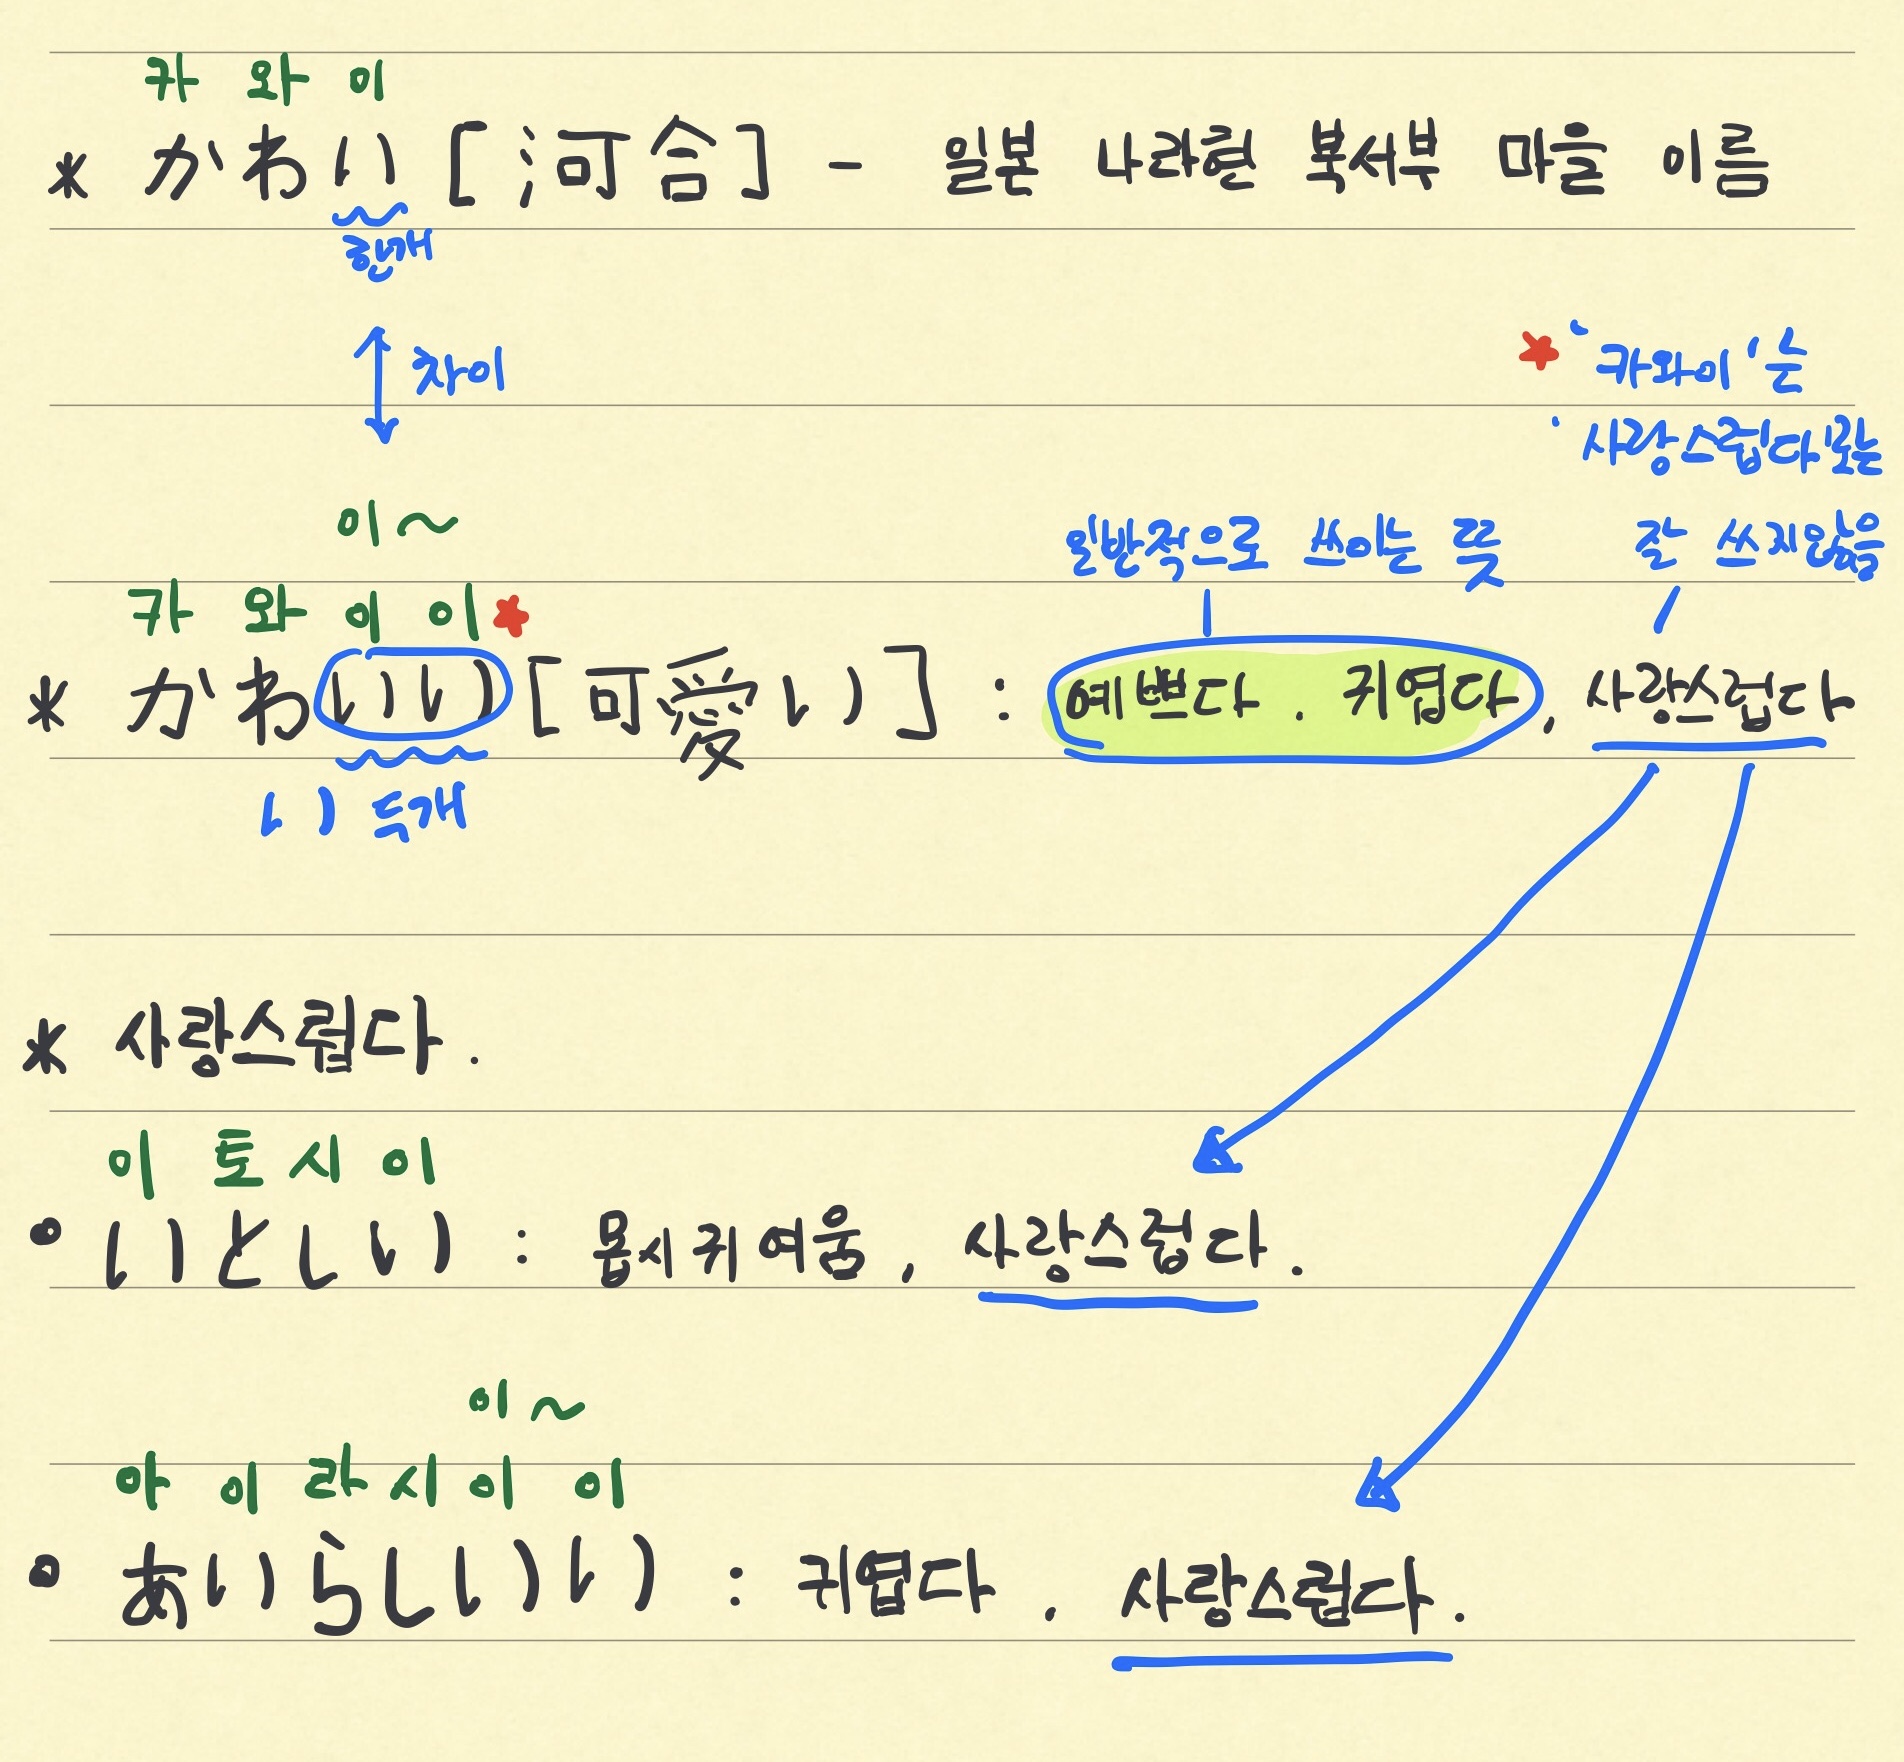 카 와 이
* かわい [河合] - 일본 나라현 북서부 마을 이름
한개
차이
★ '카와이'는
'사랑스럽다'로는
잘 쓰지않음
일반적으로 쓰이는 뜻
이~
카 와 이 이 ★
* かわいい [可愛い] : 예쁘다. 귀엽다, 사랑스럽다
い 두개
* 사랑스럽다.
이 토 시 이
• いとしい : 몹시 귀여움, 사랑스럽다.
이~
아 이 라 시 이 이
• あいらしいい : 귀엽다. 사랑스럽다.